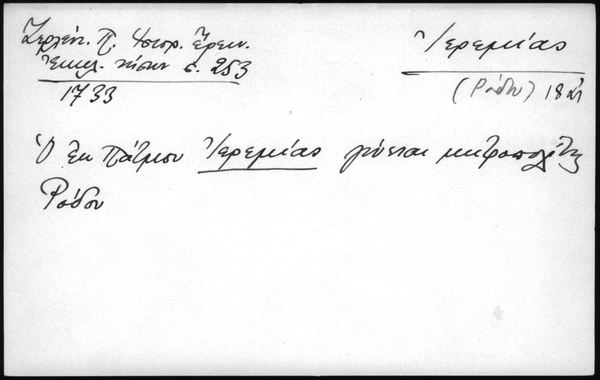 Ζερλέντ. Π. Ἱστορ. Ἔρευν.
Ἐκκλ. νήσων σ. 253
1733
Ἱερεμίας
(Ρόδου) 18 αἰ
Ὁ ἐκ Πάτμου Ἱερεμίας γίνεται μητροπολίτης
Ρόδου